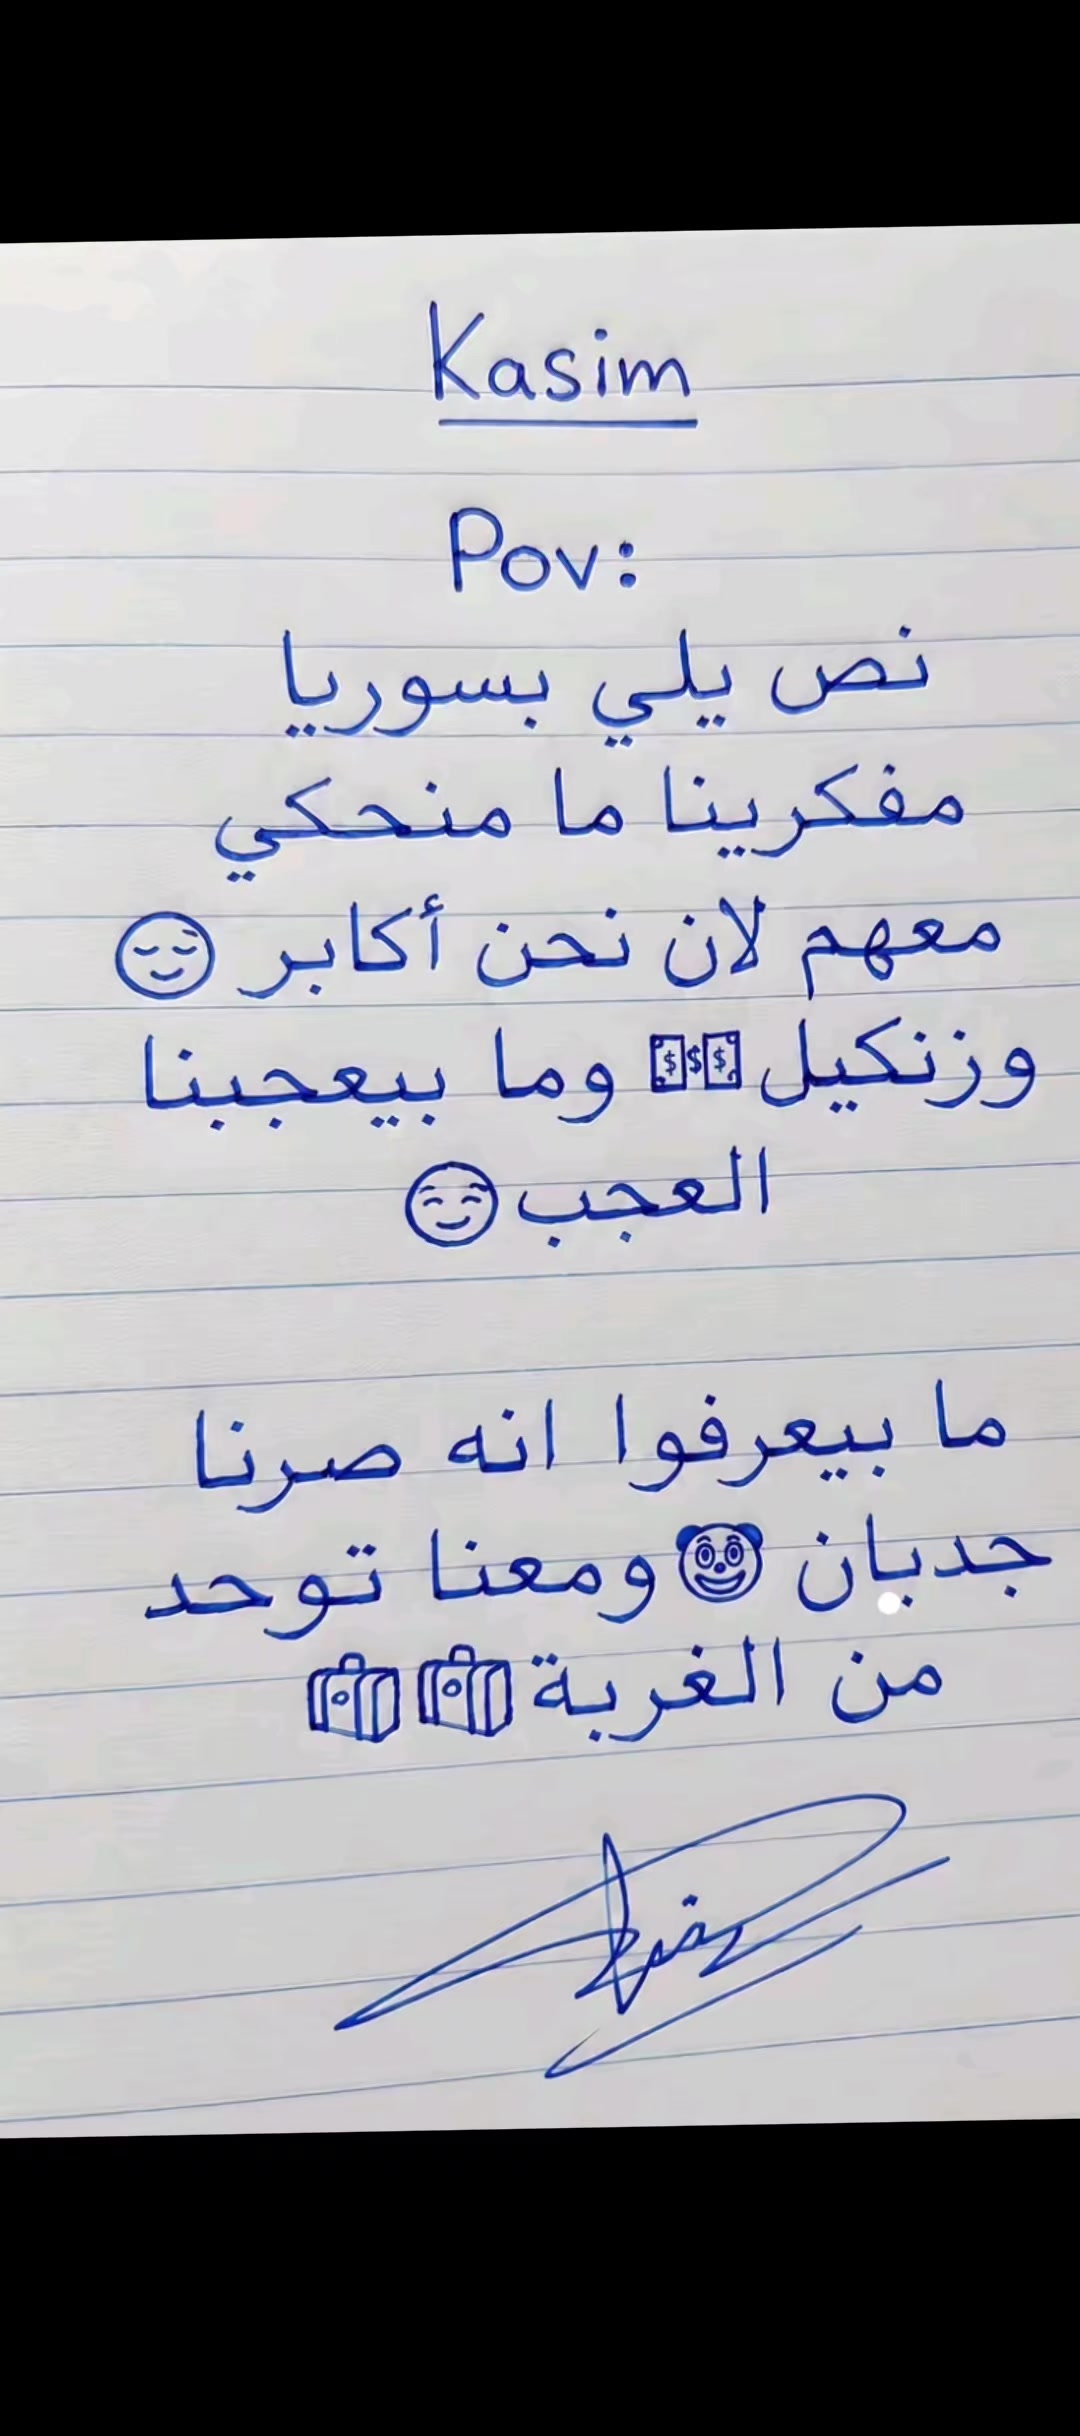 Kasim
Pov:
نص يلي بسوريا
مفكرينا ما منحكي
معهم لان نحن أكابر 😌
وزنكيل💵💵 وما بيعجبنا
العجب😌
ما بيعرفوا انه صرنا
جدبان 🤡ومعنا توحد
من الغربة🧳🧳